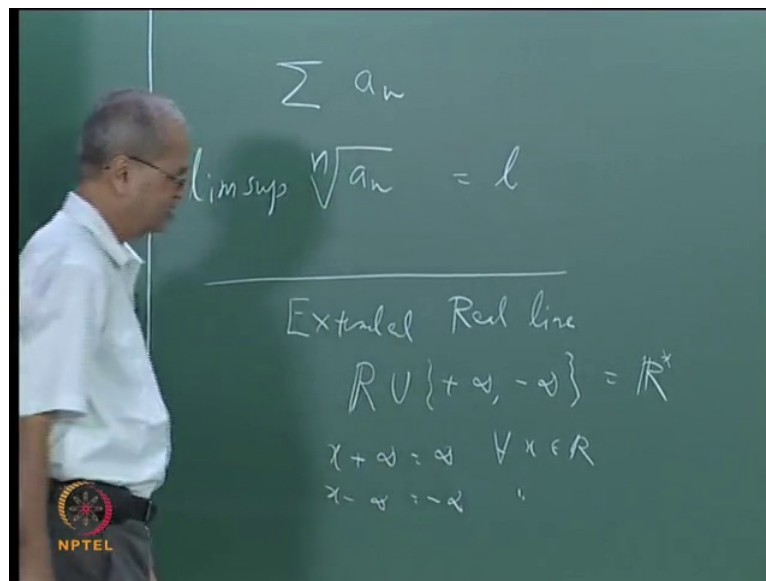 ∑ aₙ
limsup ⁿ√aₙ = l
Extended Real line
ℝ ∪ {+∞, -∞} = ℝ*
x + ∞ = ∞ ∀ x ∈ R
x - ∞ = -∞ "
NPTEL